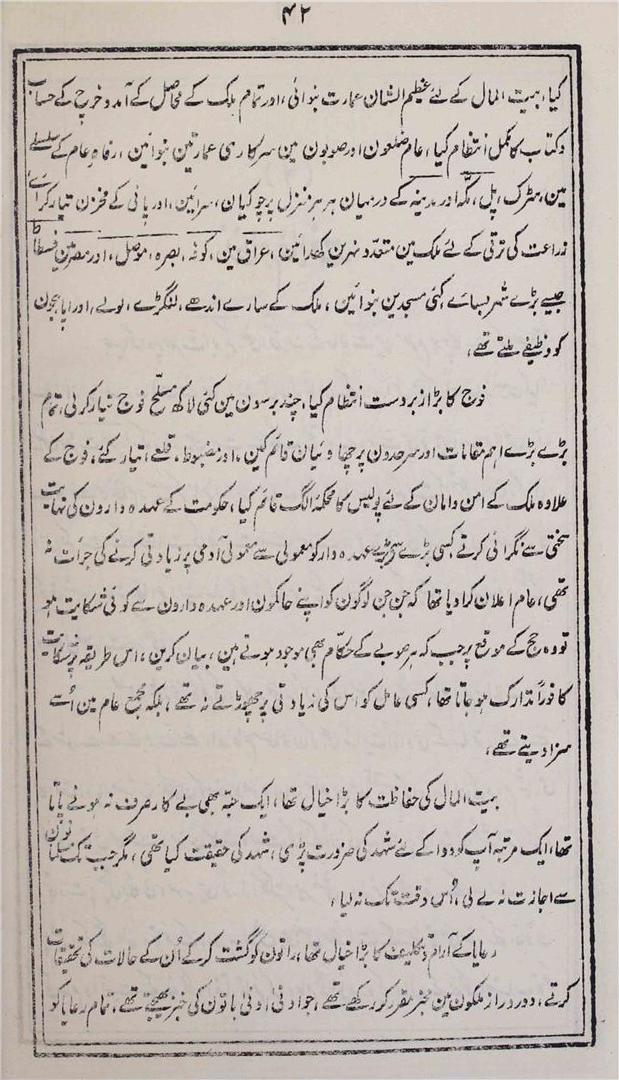 ۴۲
کیا، بیت المال کے لئے عظیم الشان عمارت بنوائی، اور تمام ملک کے محاصل کے آمد و خرچ کے حساب
و کتاب کا مکمل انتظام کیا، عام ضلعون اور صوبون مین سرکاری عمارتین بنوائین، رفاہِ عام کے سلسلے
مین، سڑک، پل، مکہ اور مدینہ کے درمیان ہر ہر منزل پر چوکیان، سرائین، اور پانی کے مخزن تیار کرائے
زراعت کی ترقی کے لئے ملک مین متعدد نہرین کھدوائین، عراق مین، کوفہ، بصرہ، موصل، اور مصر مین فسطاط
جیسے بڑے شہر بسائے، کئی مسجدین بنوائین، ملک کے سارے اندھے، لنگڑے، لولے، اور اپاہجون
کو وظیفے ملتے تھے،
فوج کا بڑا زبردست انتظام کیا، چند برسون مین کئی لاکھ مسلح فوج تیار کرلی، تمام
بڑے بڑے اہم مقامات اور سرحدون پر چھاونیان قائم کین، اور مضبوط، قلعے تیار کئے، فوج کے
علاوہ ملک کے امن و امان کے لئے پولیس کا محکمہ الگ قائم کیا، حکومت کے عہدہ دارون کی نہایت
سختی سے نگرانی کرتے کسی بڑے سے بڑے عہدہ دار کو معمولی سے معمولی آدمی پر زیادتی کرنے کی جرأت نہ
تھی، عام اعلان کرا دیا تھا کہ جن جن لوگون کو اپنے حاکمون اور عہدہ دارون سے کوئی شکایت ہو
تو وہ حج کے موقع پر جب کہ ہر صوبے کے حکّام بھی موجود ہوتے ہین، بیان کرین، اس طریقہ پر شکایت
کا فوراً تدارک ہو جاتا تھا، کسی عامل کو اس کی زیادتی پر چھوڑتے نہ تھے، بلکہ مجمع عام مین اُسے
سزا دیتے تھے،
بیت المال کی حفاظت کا بڑا خیال تھا، ایک حبّہ بھی بے کار صرف نہ ہونے پاتا
تھا، ایک مرتبہ آپ کو دوا کے لئے شہد کی ضرورت پڑی، شہد کی حقیقت کیا تھی، مگر جب تک مسلمانون
سے اجازت نہ لے لی، اُس وقت تک نہ لیا،
رعایا کے آرام و تکلیف کا بڑا خیال تھا، راتون کو گشت کرکے اُن کے حالات کی تحقیقات
کرتے، دور دراز ملکون مین مخبر مقرر کر رکھے تھے، جو ادنیٰ ادنیٰ باتون کی خبر بھیجتے تھے، تمام رعایا کو